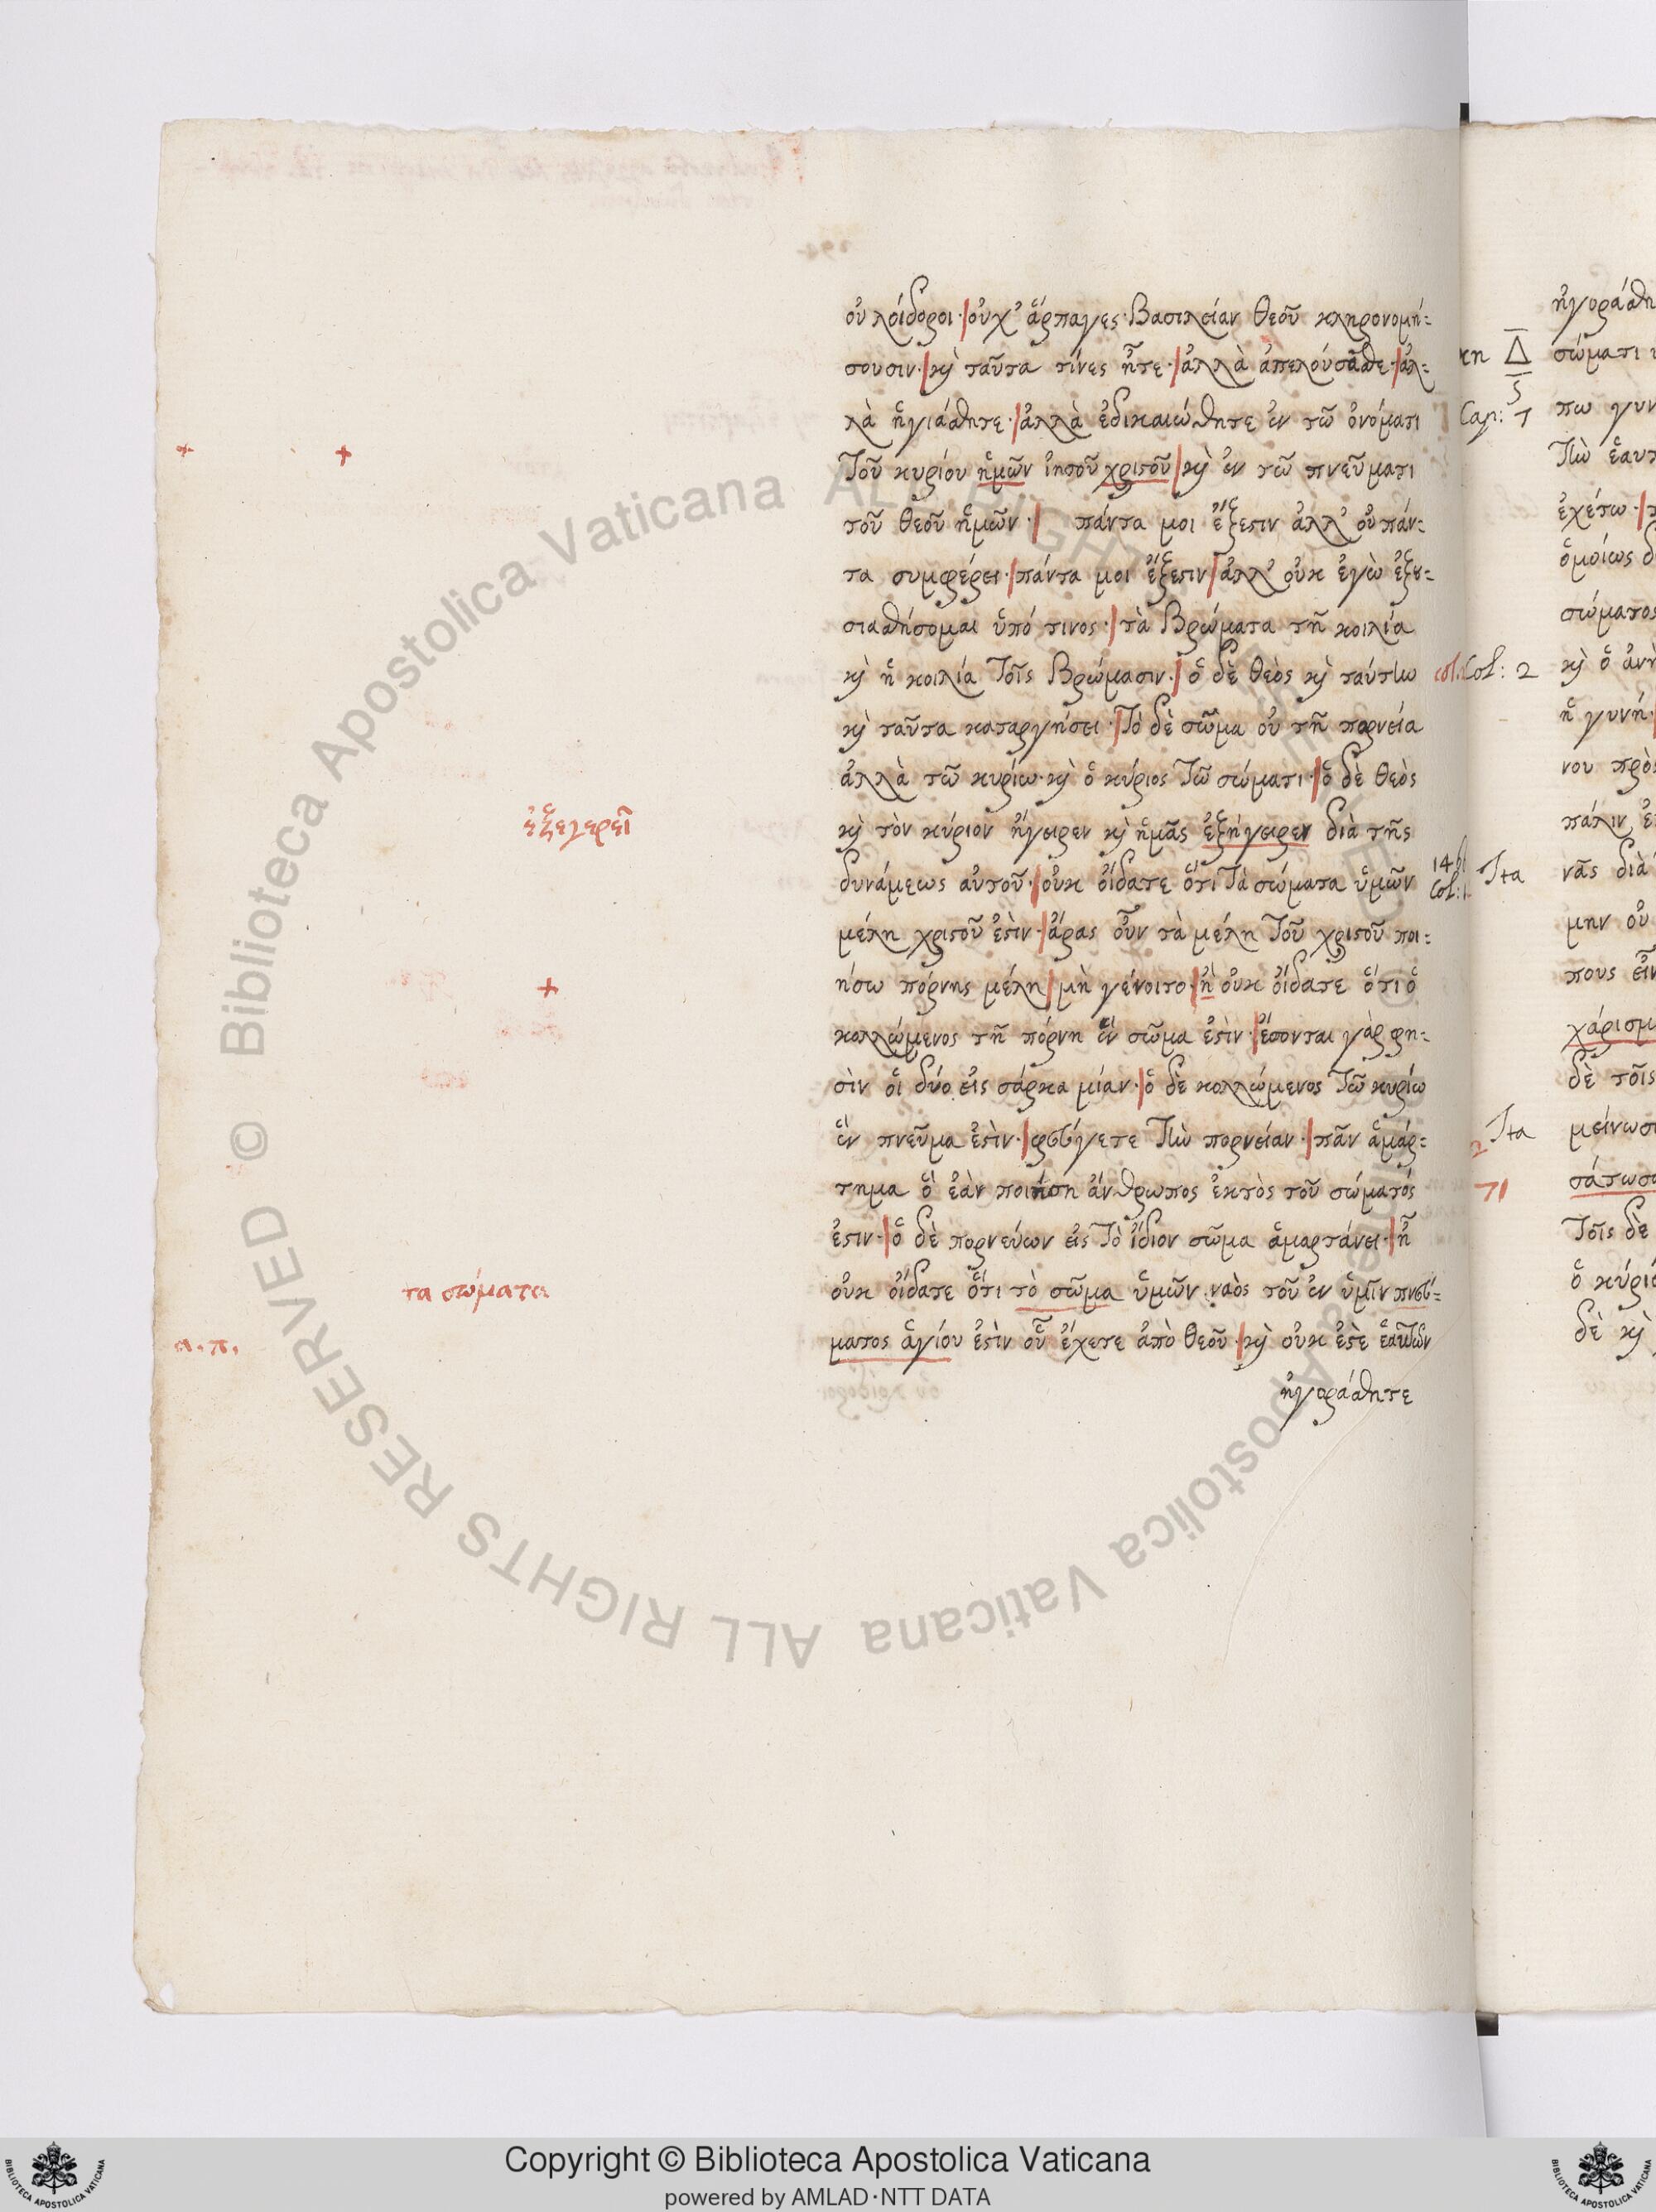 οὐ λοίδοροι·|οὐχ᾽ ἅρπαγες·Βασιλείαν θεοῦ κληρονομή:
σουσιν·|καὶ ταῦτα τίνες ἦτε·|ἀλλὰ ἀπελούσασθε·|ἀλ:
λὰ ἡγιάσθητε·|ἀλλὰ ἐδικαιώθητε ἐν τῶ ὀνόματι
+ + τοῦ κυρίου ἡμῶν ἰησοῦ χριστοῦ|καὶ ἐν τῶ πνεύματι
τοῦ θεοῦ ἡμῶν·| πάντα μοι ἔξεστιν ἀλλ᾽ οὐ πάν:
τα συμφέρει·|πάντα μοι ἔξεστιν|ἀλλ᾽ οὐκ ἐγὼ ἐξου:
σιασθήσομαι ὑπό τινος·|τὰ Βρώματα τῆ κοιλία
καὶ ἡ κοιλία τοῖς Βρώμασιν·|ὁ δὲ θεὸς καὶ ταύτην
καὶ ταῦτα καταργήσει·|τὸ δὲ σῶμα οὐ τῆ πορνεία
ἀλλὰ τῶ κυρίω·καὶ ὁ κύριος τῶ σώματι·|ὁ δὲ θεὸς
ἐξεγερεῖ καὶ τὸν κύριον ἤγειρεν καὶ ἡμᾶς ἐξήγειρεν διὰ τῆς
δυνάμεως αὐτοῦ·|οὐκ οἴδατε ὅτι τὰ σώματα ὑμῶν
μέλη χριστοῦ ἐστὶν·|ἄρας οὖν τὰ μέλη τοῦ χριστοῦ ποι:
+ ήσω πόρνης μέλη|μὴ γένοιτο·|ἢ οὐκ οἴδατε ὅτι ὁ
κολλώμενος τῆ πόρνη ἓν σῶμα ἐστὶν·|ἔσονται γὰρ φη:
σὶν οἱ δύο εἰς σάρκα μίαν·|ὁ δὲ κολλώμενος τῶ κυρίω
ἓν πνεῦμα ἐστὶν·|φεύγετε τὴν πορνείαν·|πᾶν ἁμάρ:
τημα ὃ ἐὰν ποιήση ἄνθρωπος ἐκτὸς τοῦ σώματός
ἐστιν·|ὁ δὲ πορνεύων εἰς τὸ ἴδιον σῶμα ἁμαρτάνει·|ἢ
τα σώματα οὐκ οἴδατε ὅτι τὸ σῶμα ὑμῶν ναὸς τοῦ ἐν ὑμῖν πνεύ:
α.π. ματος ἁγίου ἐστὶν οὗ ἔχετε ἀπὸ θεοῦ·|καὶ οὐκ ἐστὲ ἑαυτῶν
ἠγοράσθητε
Col: 2
14
Col: 1
Cap: 7
Ita
Ita
ἠγοράσθη
σώματι
πω γυν
τὴν ἑαυτ
ἐχέτω·|
ὁμοίως δ
σώματος
καὶ ὁ ἀνὴ
ἡ γυνή·
νου πρὸς
πάλιν ἐ
νᾶς διὰ
μην οὐ
πους εἶν
χάρισμ
δὲ τοῖς
μείνωσι
σάτωσα
τοῖς δὲ
ὁ κύριο
δὲ καὶ
© Biblioteca Apostolica Vaticana ALL RIGHTS RESERVED
© Biblioteca Apostolica Vaticana ALL RIGHTS RESERVED
Copyright © Biblioteca Apostolica Vaticana
powered by AMLAD·NTT DATA
BIBLIOTECA APOSTOLICA VATICANA
BIBLIOTECA APOSTOLICA VATICANA